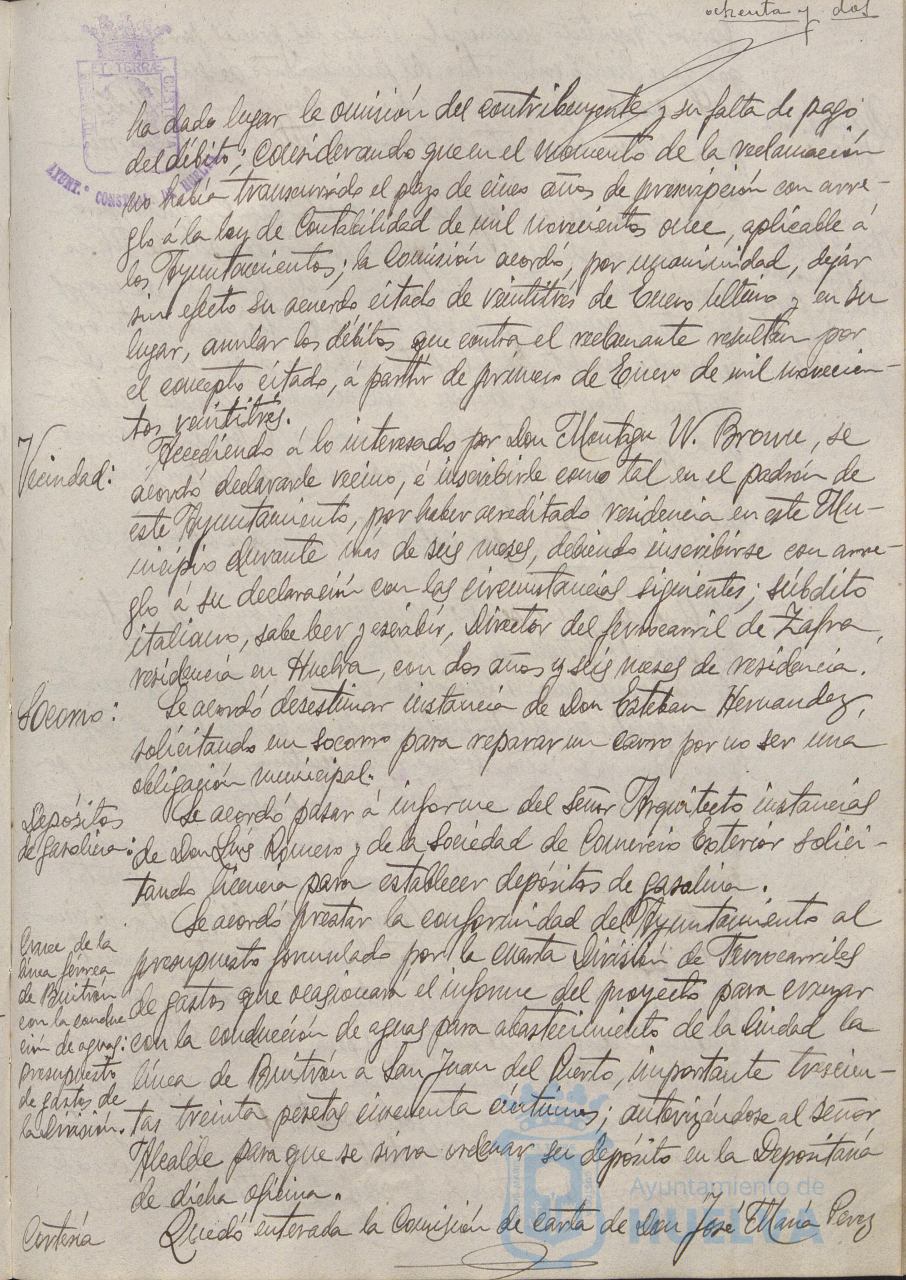 ochenta y dos
ET TERRÆ
AYUNT.º CONSTNAL DE HUELVA
ha dado lugar la omisión del contribuyente y su falta de pago
del débito; Considerando que en el momento de la reclamación
no había transcurrido el plazo de cinco años de prescripción con arre-
glo á la ley de Contabilidad de mil novecientos once, aplicable á
los Ayuntamientos; la Comisión acordó, por unanimidad, dejar
sin efecto su acuerdo citado de veintitrés de Enero último y en su
lugar, anular los débitos que contra el reclamante resultan por
el concepto citado, á partir de primero de Enero de mil novecien-
tos veintitrés.
Vecindad:
Accediendo á lo interesado por Don Montagu W. Brown, se
acordó declararle vecino, é inscribirle como tal en el padrón de
este Ayuntamiento, por haber acreditado residencia en este Mu-
nicipio durante más de seis meses, debiendo inscribirse con arre-
glo á su declaración con las circunstancias siguientes; súbdito
italiano, sabe leer y escribir, Director del ferrocarril de Zafra,
residencia en Huelva, con dos años y seis meses de residencia.
Socorro:
Se acordó desestimar instancia de Don Esteban Hernandez,
solicitando un socorro para reparar un carro por no ser una
obligación municipal.
Depósitos
de gasolina:
Se acordó pasar á informe del señor Arquitecto instancias
de Don Luís Romero y de la Sociedad de Comercio Exterior solici-
tando licencia para establecer depósitos de gasolina.
Cruce de la
línea férrea
de Buitrón
con la conduc
ción de aguas:
presupuesto
de gastos de
la División.
Se acordó prestar la conformidad del Ayuntamiento al
presupuesto formulado por la cuarta División de Ferrocarriles
de gastos que ocasionara el informe del proyecto para cruzar
con la conducción de aguas para abastecimiento de la Ciudad la
línea de Buitrón a San Juan del Puerto, importante trescien-
tas treinta pesetas cincuenta céntimos; autorizándose al señor
Alcalde para que se sirva ordenar su depósito en la Depositaría
de dicha oficina.
Cortesía
Quedó enterada la Comisión de carta de Don José María Perez
Ayuntamiento de
HUELVA